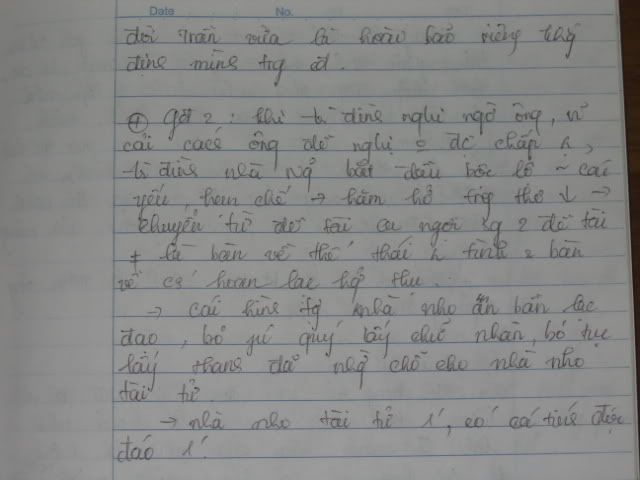 Date No.
đời Trần vừa là hoài bão riêng khẳg
định mình trg cđ.
⊕ gđ 2: khi tr đình nghi ngờ ông, n~
cải cách ông đề nghị o đc chấp n,
tr đình nhà Ng bắt đầu bộc lộ ~ cái
yếu, hạn chế → hăm hở trg thơ ↓ →
chuyển từ đề tài ca ngợi sg 2 đề tài
+ là bàn về thế thái n tình 2 bàn
về cs hoan lạc hg thụ.
→ cái hình tg nhà nho ẩn bần lạc
đạo, bỏ phú quý lấy chữ nhàn, bỏ tục
lấy thanh đã nhg chỗ cho nhà nho
tài tử.
→ nhà nho tài tử 1', có cá tính độc
đáo 1'